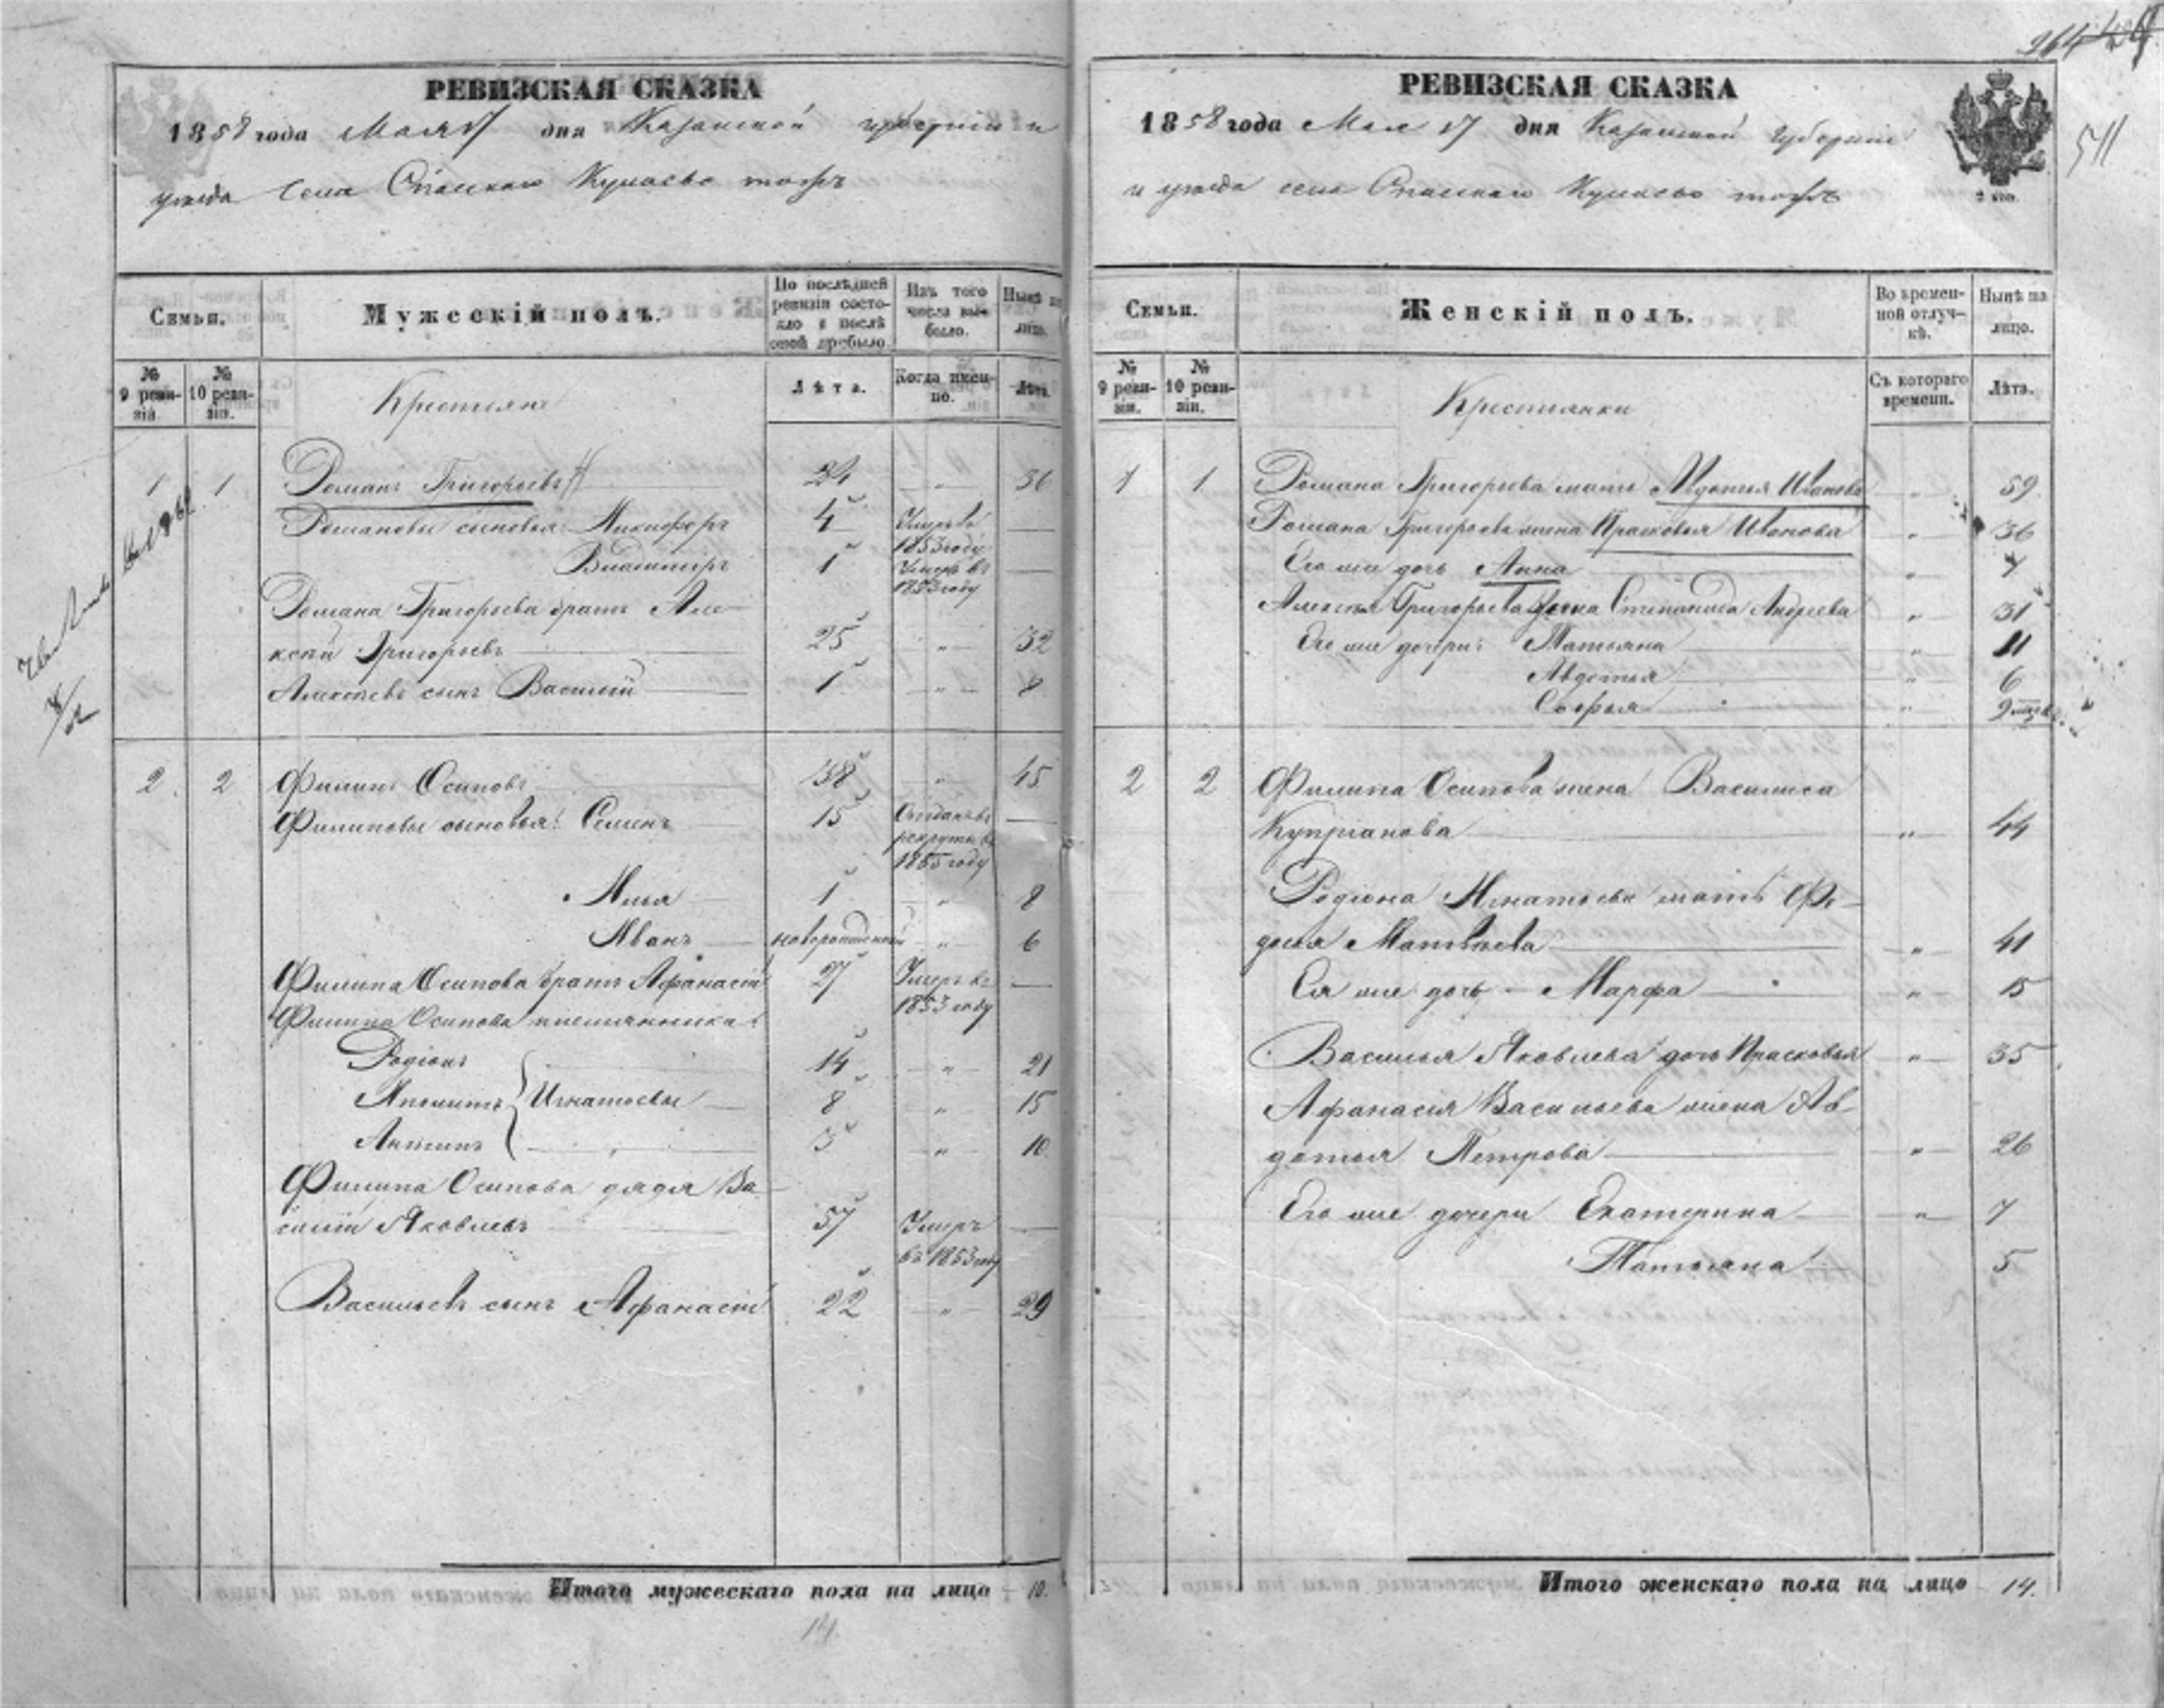 РЕВИЗСКАЯ СКАЗКА
1858 года Мая 17 дня Казанской губернии и
уезда села Спаского Кулаево тожъ
Семьи.
Мужескій полъ.
По послѣдней ревизіи состояло и послѣ оной прибыло.
Изъ того числа выбыло.
Нынѣ на лицо.
№ 9 ревизіи.
№ 10 ревизіи.
Крестьяне
Лѣта.
Когда именно.
Лѣта.
1 1 Романъ Григорьевъ 24 „ 36
Романовы сыновья: Никифоръ 4 Умеръ въ 1853 году —
Владимиръ 1 Умеръ въ 1853 году —
Романа Григорьева братъ Але-
ксѣй Григорьевъ 25 „ 32
Алексѣевъ сынъ Василій 1 „ 8
2 2 Филипъ Осиповъ 38 „ 45
Филиповы сыновья: Семенъ 15 Отданъ въ рекруты въ 1855 году —
Илья 1 „ 8
Иванъ новорожденный „ 6
Филипа Осипова братъ Афанасій 27 Умеръ въ 1853 году —
Филипа Осипова племянники:
Родіонъ 14 „ 21
Иполитъ Игнатьевы 8 „ 15
Антипъ 3 „ 10
Филипа Осипова дядя Ва-
силій Яковлевъ 57 Умеръ въ 1853 году —
Васильевъ сынъ Афанасій 22 „ 29
Итого мужескаго пола на лицо 10.
14.
511
РЕВИЗСКАЯ СКАЗКА
1858 года Мая 17 дня Казанской Губерніи
и уезда села Спаского Кулаево тожъ
2 коп.
Семьи.
Женскій полъ.
Во временной отлучкѣ.
Нынѣ на лицо.
№ 9 ревизіи.
№ 10 ревизіи.
Крестьянки
Съ котораго времени.
Лѣта.
1 1 Романа Григорьева мать Авдотья Иванова „ 59
Романа Григорьева жена Прасковья Иванова „ 36
Его же дочь Анна „ 7
Алексѣя Григорьева жена Степанида Андреева „ 31
Его же дочери: Татьяна „ 11
Авдотья „ 6
Софья „ 9 мѣсяц.
2 2 Филипа Осипова жена Василиса
Купріанова „ 44
Родіона Игнатьева мать Фе-
досья Матвѣева „ 41
Ея же дочь Марфа „ 15
Василья Яковлева дочь Прасковья „ 35
Афанасія Васильева жена Ав-
дотья Петрова „ 26
Его же дочери Екатерина „ 7
Татьяна 5
Итого женскаго пола на лицо 14.